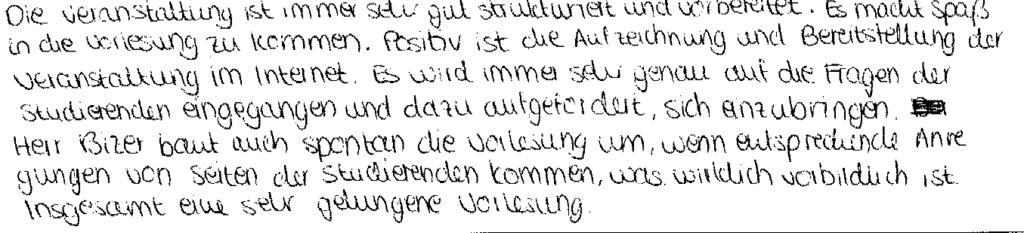 Die Veranstaltung ist immer sehr gut strukturiert und vorbereitet. Es macht Spaß
in die Vorlesung zu kommen. Positiv ist die Aufzeichnung und Bereitstellung der
Veranstaltung im Internet. Es wird immer sehr genau auf die Fragen der
Studierenden eingegangen und dazu aufgefordert, sich einzubringen.
Herr Bizer baut auch spontan die Vorlesung um, wenn entsprechende Anre
gungen von Seiten der Studierenden kommen, was wirklich vorbildlich ist.
Insgesamt eine sehr gelungene Vorlesung.